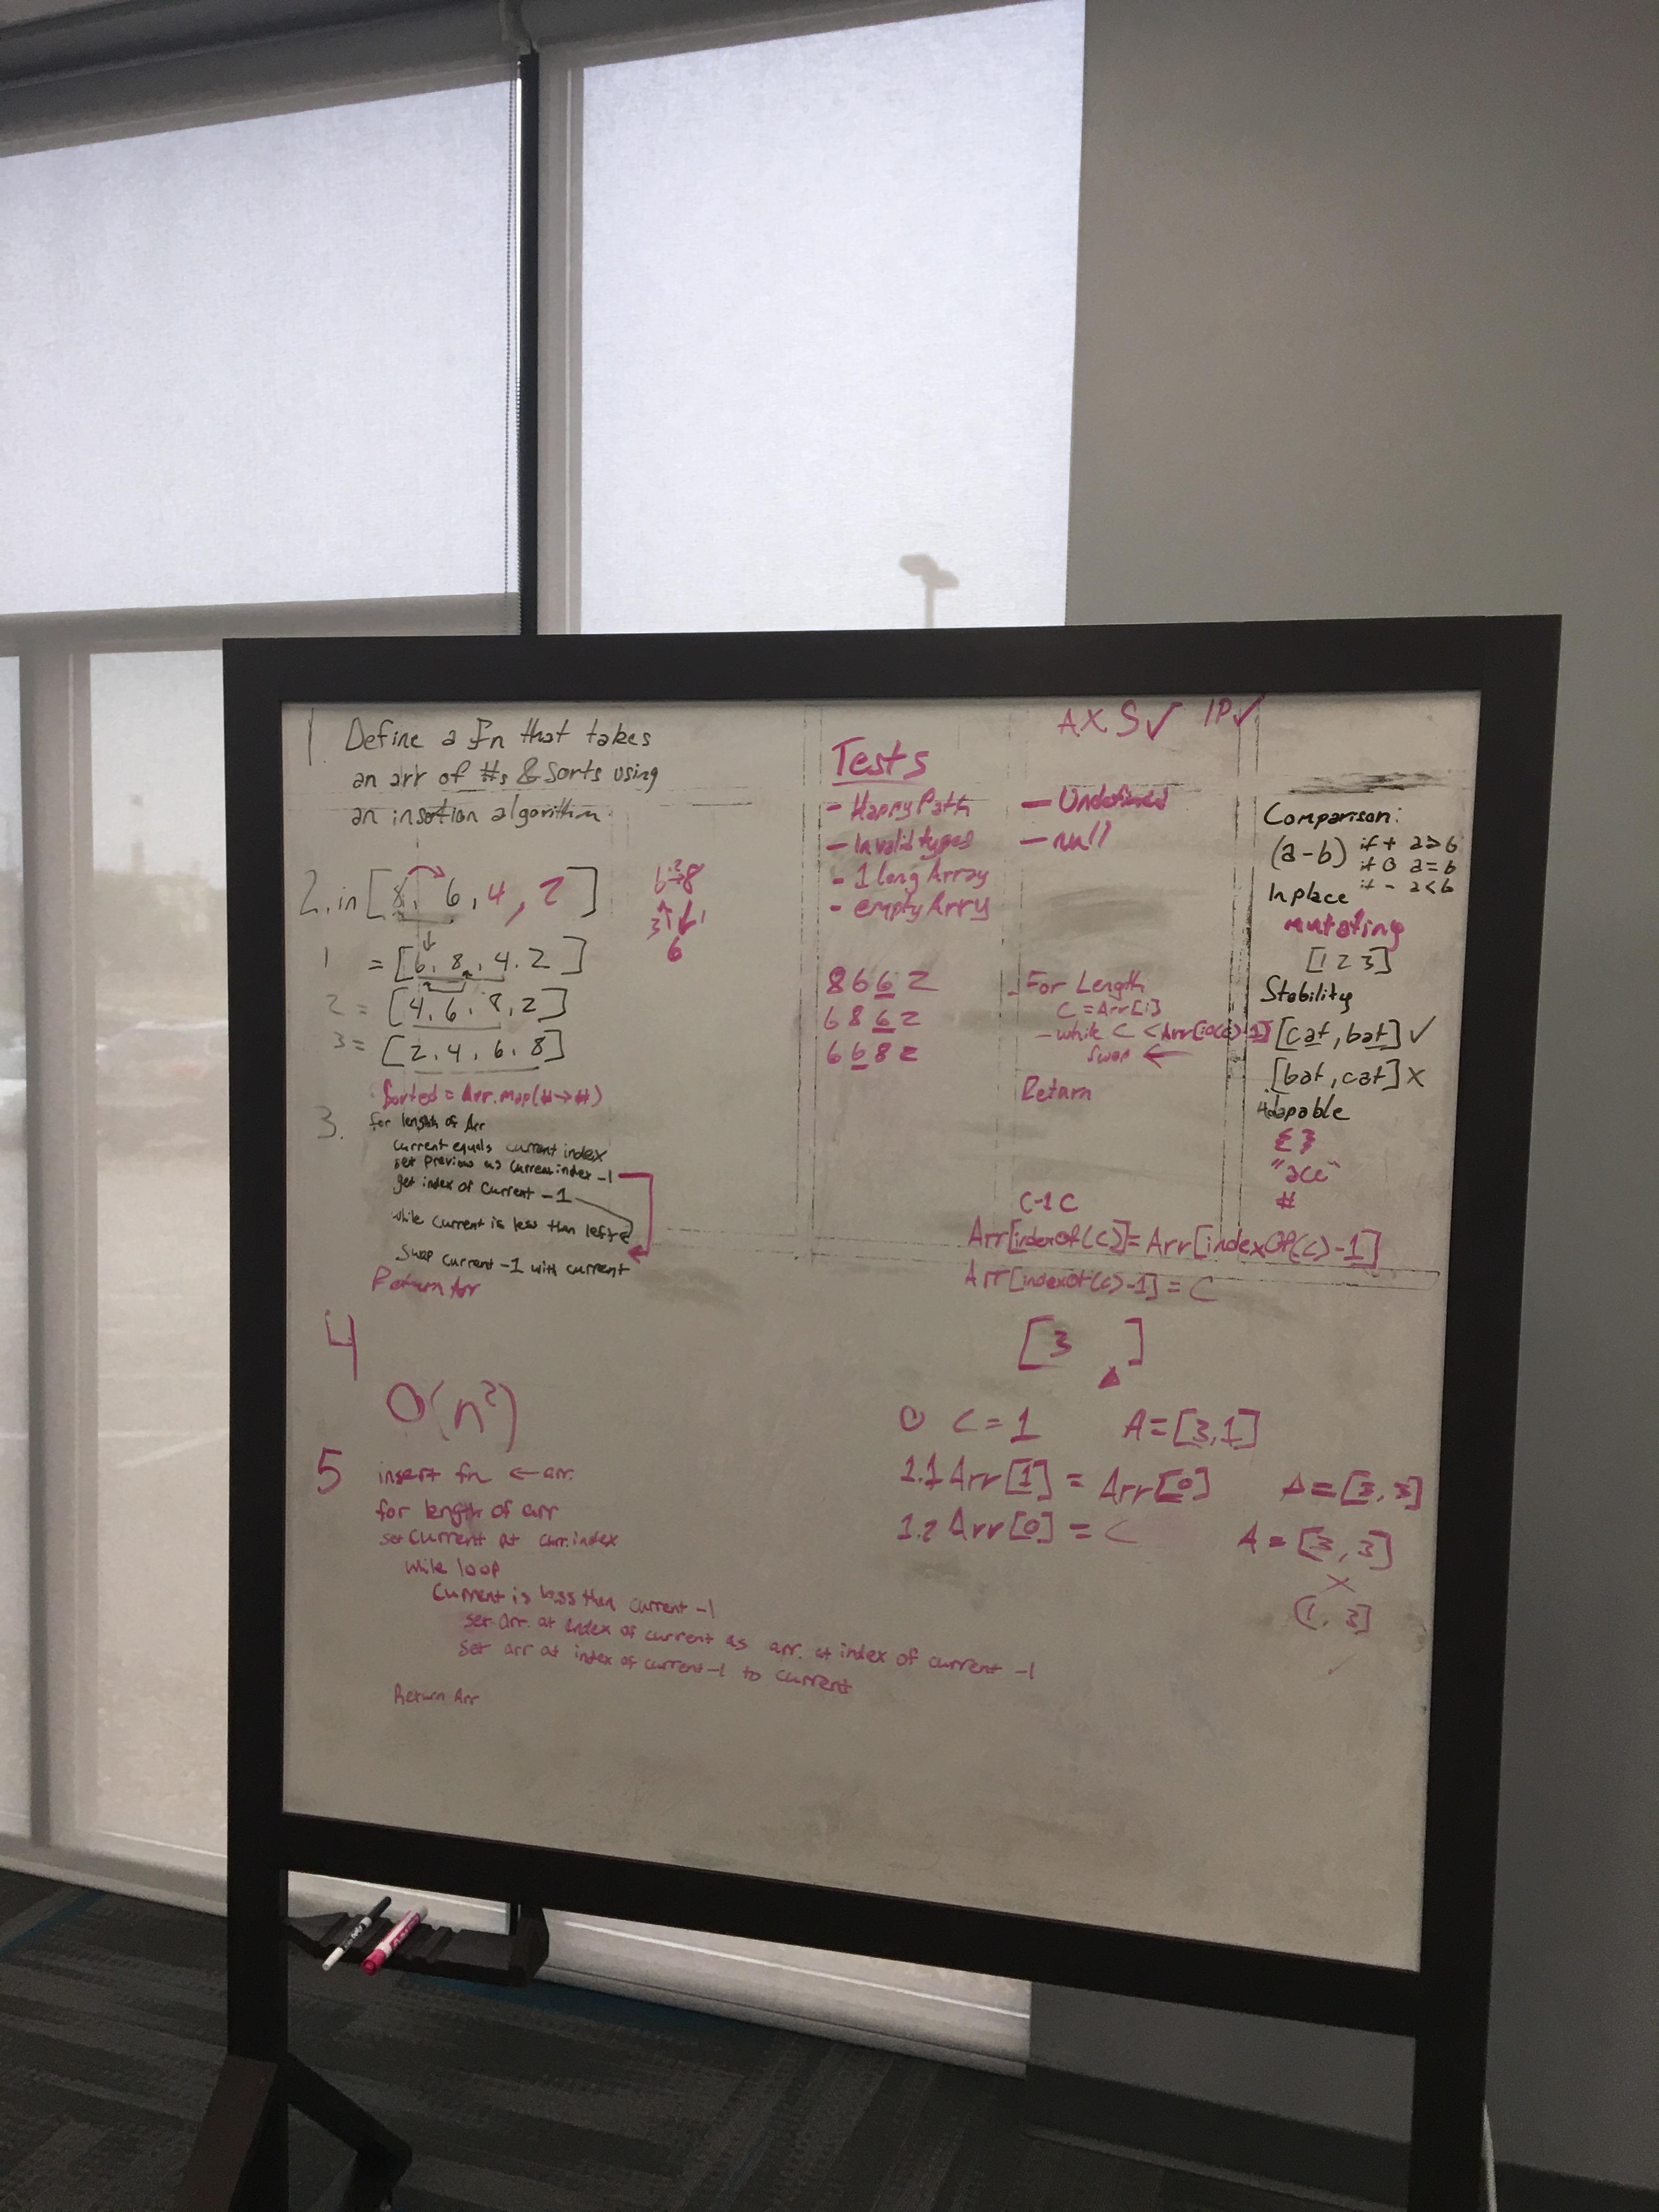 1. Define a Fn that takes
an arr of #s & sorts using
an insertion algorithm.
2. in [8, 6, 4, 2]
6→8
3↑ ↓1
6
1 = [6, 8, 4. 2]
2 = [4, 6, 8, 2]
3 = [2, 4, 6, 8]
Sorted = Arr.map(#→#)
3. for length of Arr
current equals current index
set previous as current index -1
get index of current -1
while current is less than left
Swap current -1 with current
Return Arr
4
O(n²)
5 insert fn ← arr.
for length of arr
set current at curr.index
while loop
Current is less then current -1
set arr. at index of current as arr. at index of current -1
set arr at index of current -1 to current
Return Arr
Tests
- Happy Path
- Invalid types
- 1 long Array
- empty Arry
- Undefined
- null
8 6 6 2
6 8 6 2
6 6 8 2
AX S✓ IP✓
- For Length
C = Arr[i]
- while C < Arr[io(c)-1]
Swap ←
Return
C-1 C
Arr[indexOf(c)] = Arr[indexOf(c)-1]
Arr[indexOf(c)-1] = C
[3 ]
0 C = 1 A = [3,1]
1.1 Arr[1] = Arr[0] A = [3,3]
1.2 Arr[0] = C A = [3,3]
[1, 3]
Comparison:
(a-b) if + a>b
if 0 a=b
if - a<b
In place
mutating
[1 2 3]
Stability
[cat, bat] ✓
[bat, cat] X
Adapable
{ }
#